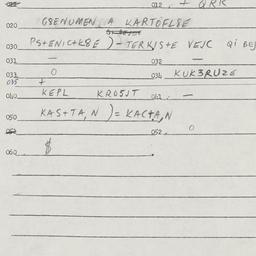 012. + QRK
020 GBENUMEN, A KARTOFLBE
030 PS+ENIC+KBE ) - TERKIS+E VEJC QI BEJ
031 — 032 —
033 O 034 KUK3RUZE
035 +
040 KEPL KROSJT 041. —
050 KAS+TA, N ) = KAC+A, N
052. O
060. $